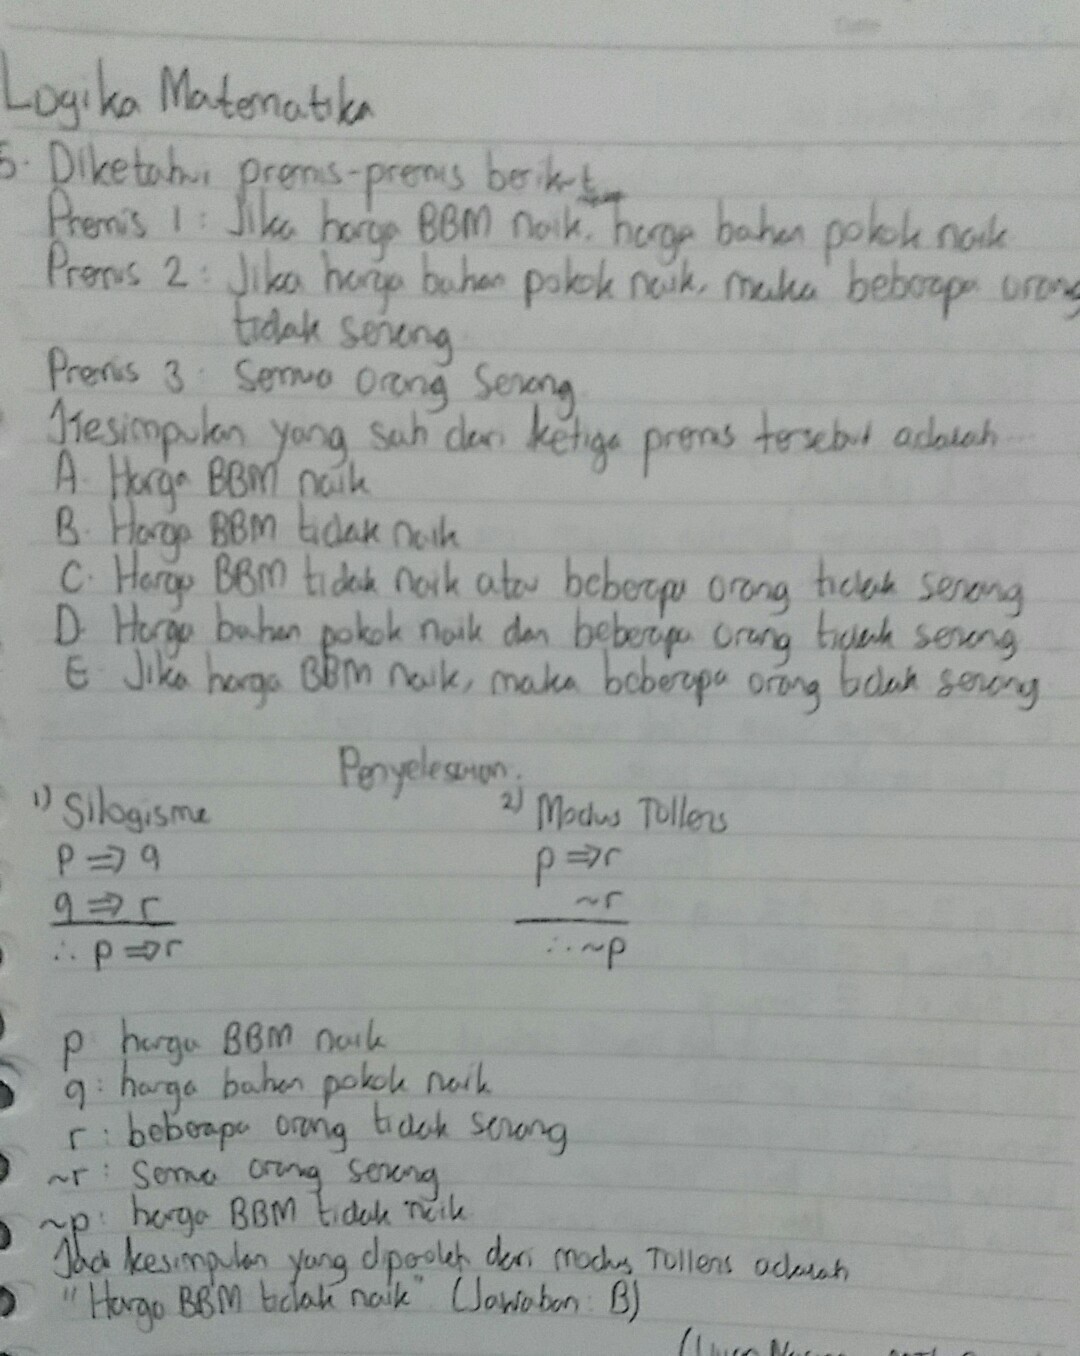 Logika Matematika
5. Diketahui premis-premis berikut
Premis 1 : Jika harga BBM naik, harga bahan pokok naik
Premis 2 : Jika harga bahan pokok naik, maka beberapa orang
tidak senang
Premis 3 : Semua orang senang
Kesimpulan yang sah dari ketiga premis tersebut adalah ...
A. Harga BBM naik
B. Harga BBM tidak naik
C. Harga BBM tidak naik atau beberapa orang tidak senang
D. Harga bahan pokok naik dan beberapa orang tidak senang
E. Jika harga BBM naik, maka beberapa orang tidak senang
Penyelesaian.
1) Silogisme
p ⇒ q
q ⇒ r
∴ p ⇒ r
2) Modus Tollens
p ⇒ r
~r
∴ ~p
p harga BBM naik
q : harga bahan pokok naik
r : beberapa orang tidak senang
~r : Semua orang senang
~p : harga BBM tidak naik
Jadi kesimpulan yang diperoleh dari modus Tollens adalah
"Harga BBM tidak naik" (Jawaban : B)